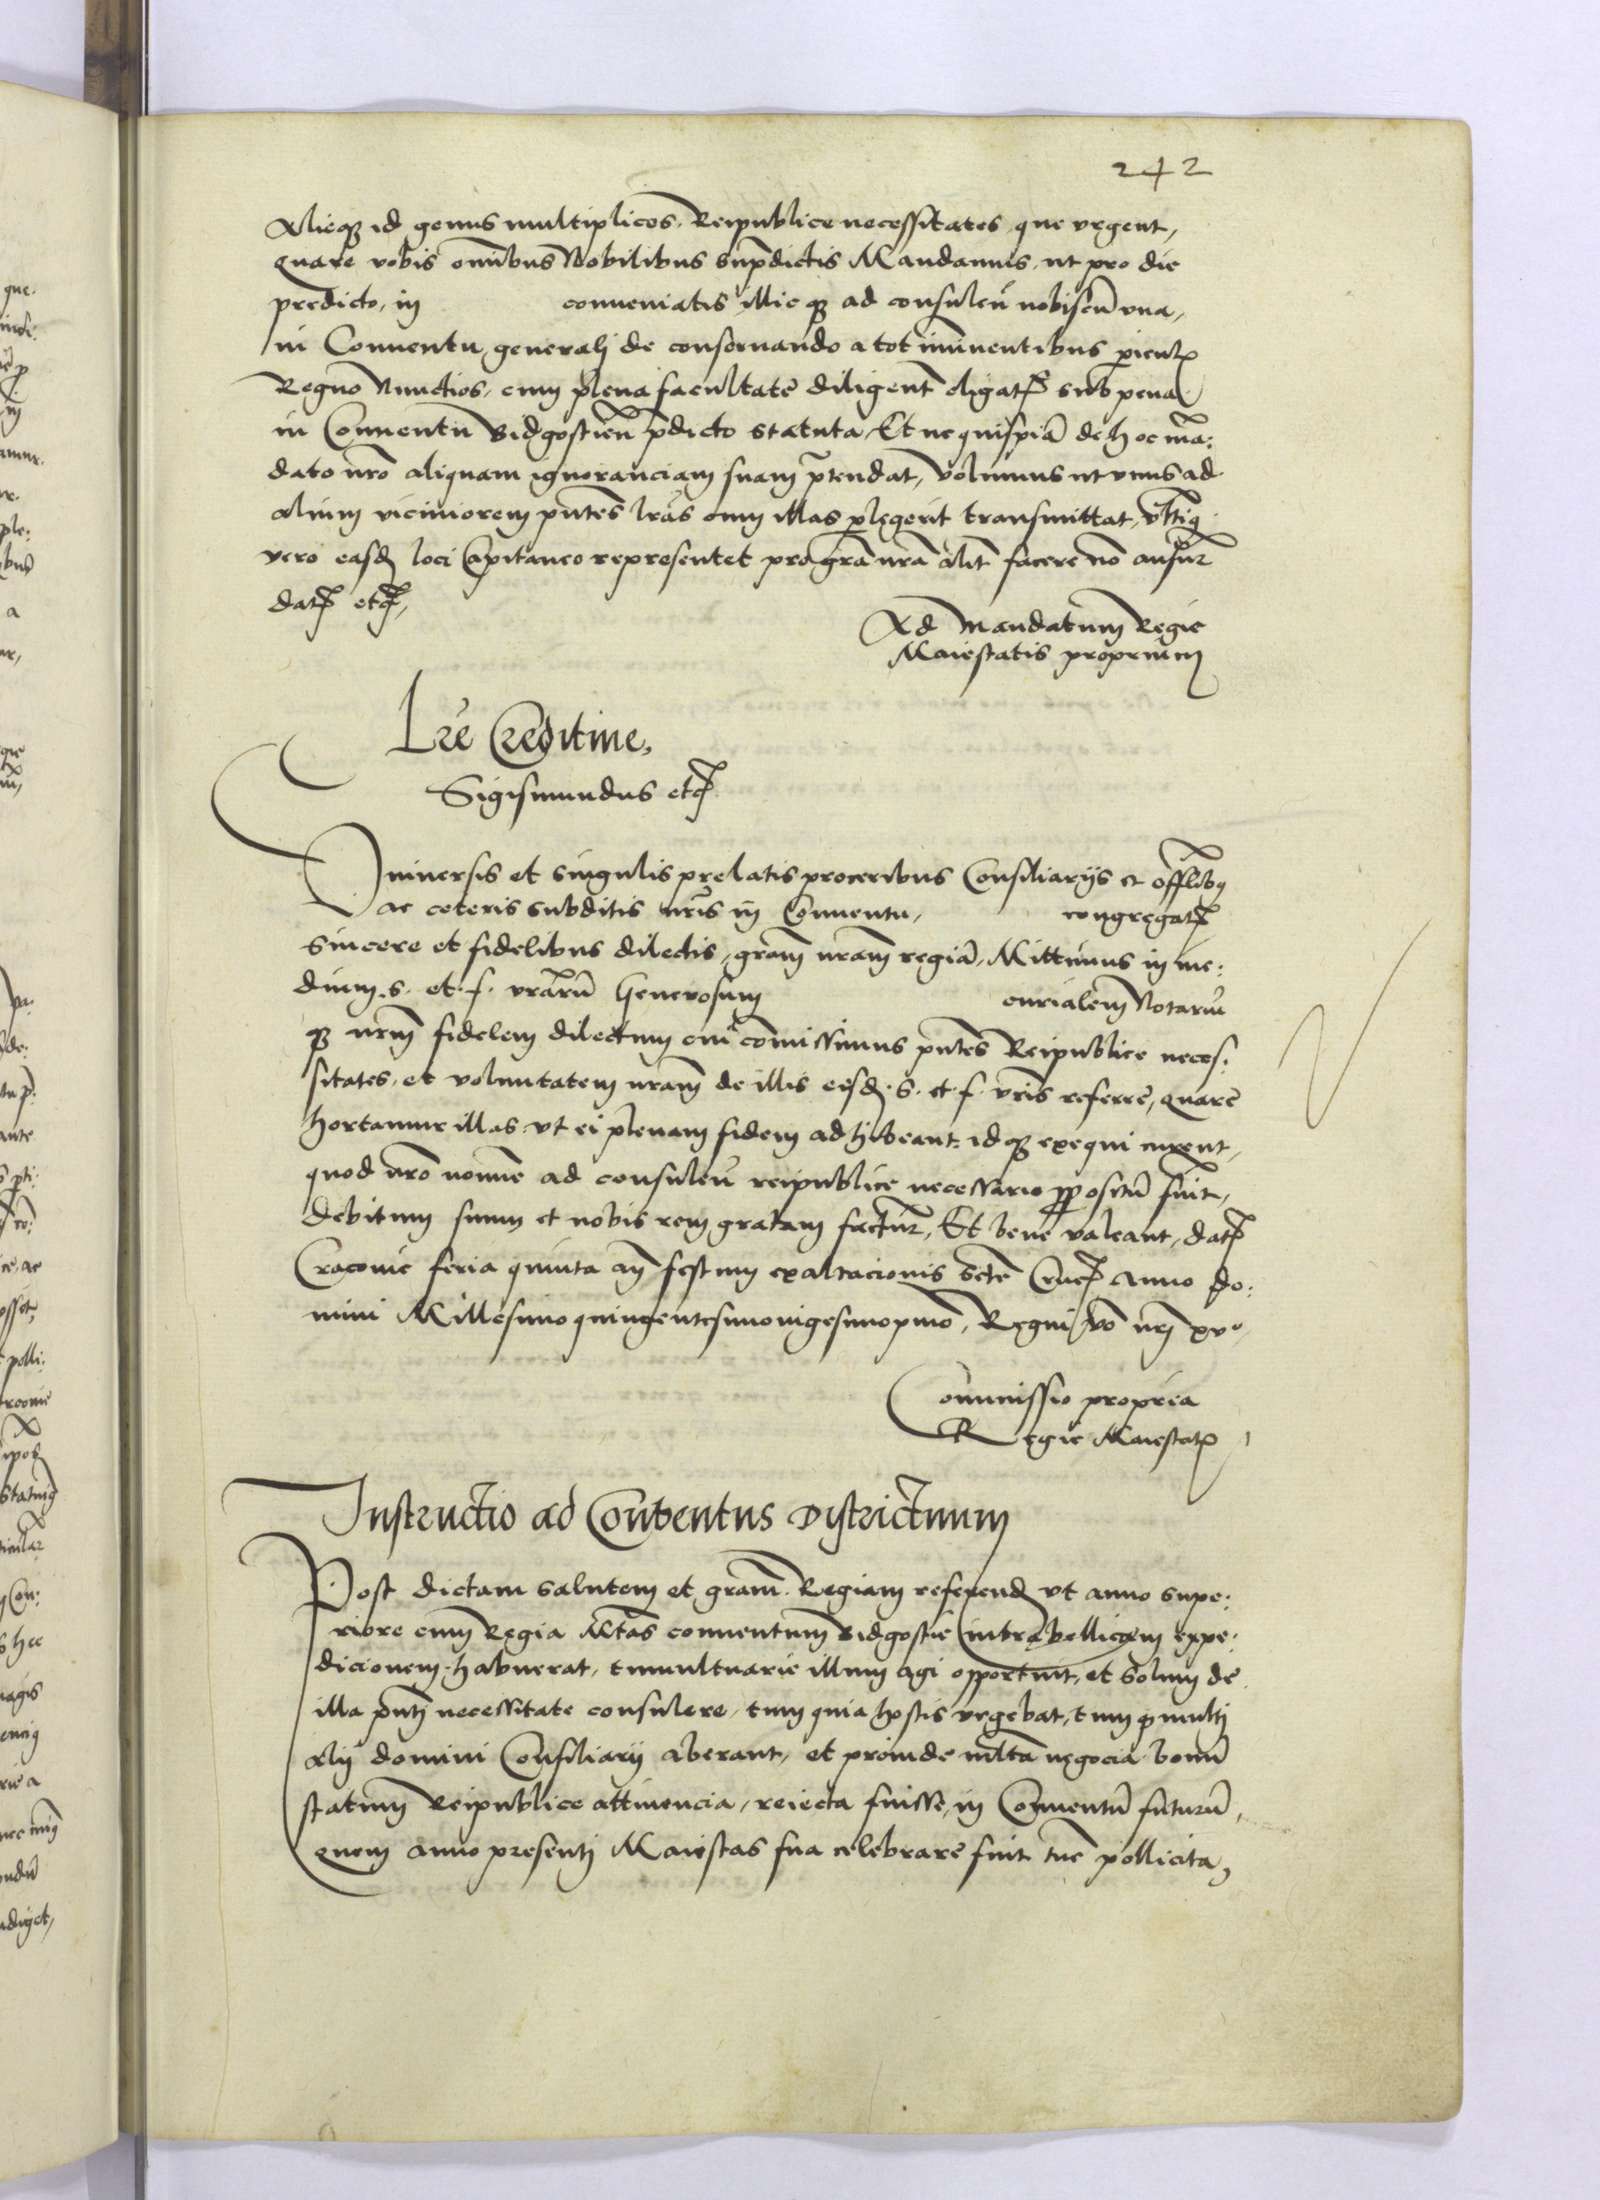 242
Alieq3 id genus multiplices, Reipublice necessitates, que vrgent,
quare vobis omibus Nobilibus supdictis Mandamus, ut pro die
predicto, in conueniatis illicq3 ad consulen̄ nobiscū vna,
in Conuentu generali de conseruando a tot iminentibus
Regno Nunctios, cum plena facultate diligent eligat sub pena
in Conuentu Bidgostien̄ p̄dicto statuta, Et ne quispiā de hoc mā:
dato nr̄o aliquam ignoranciam suam p̄tendat, Volumus ut vnus ad
alium viciniorem pn̄tes lr̄as cum illas plegerit transmittat,
vero easd loci Capitaneo representet pro gr̄a nr̄a alit facere nō
dat etc,
Ad mandatum Regie
Maiestatis proprium
Lr̄e Creditiue,
Sigismundus etc
Vniuersis et singulis prelatis proceribus Consiliarijs et
ac ceteris subditis nr̄is in Conuentu, congregat
sincere et fidelibus dilectis, gram nram regiā, Mittimus in me:
dium, s. et. f. vrarū Generosum curialem Notariū
q3 nrm fidelem dilectum cui comissimus pn̄tes Reipublice neces:
sitates, et voluntatem nram de illis eisd. s. et f. vris referre, quare
hortamur illas vt ei plenam fidem adhibeant, idq3 exequi curent,
quod nr̄o nomine ad consulen̄ reipublice necessario ppositū fuit,
debitum suum et nobis rem gratam factur, Et bene valeant, dat
Cracouie feria quinta an festum exaltacionis scte Cruc Anno do:
mini Millesimo quingentesimo vigesimo pmo, Regni vo nri xvo
Commissio propria
Regie Maiestat
Instructio ad Conuentus Districtuum
Post dictam salutem et gram Regiam referend vt anno supe:
riore cum Regia Mtas conuentum Bidgostie intra bellicam expe:
dicionem habuerat, tumultuarie illum agi opportuit, et solum de
illa pnti necessitate consulere, tum quia hostis vrgebat, tum q multi
alij domini Consiliarij aberant, et proinde mlta negocia bonū
statum Reipublice attinencia, reiecta fuisse in Conuentū futurū,
quem anno presenti Maiestas sua celebrare fuit tūc pollicita,